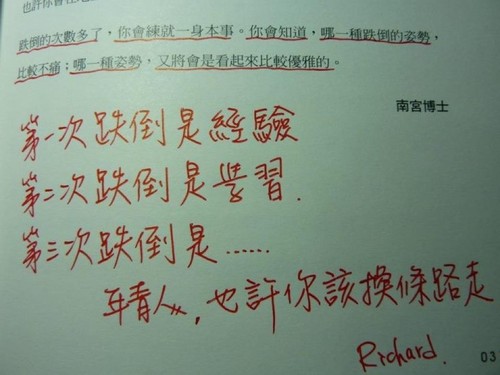 跌倒的次數多了，你會練就一身本事。你會知道，哪一種跌倒的姿勢，
比較不痛；哪一種姿勢，又將會是看起來比較優雅的。
南宮博士
第一次跌倒是經驗
第二次跌倒是學習.
第三次跌倒是……
年青人，也許你該換條路走
Richard.
03